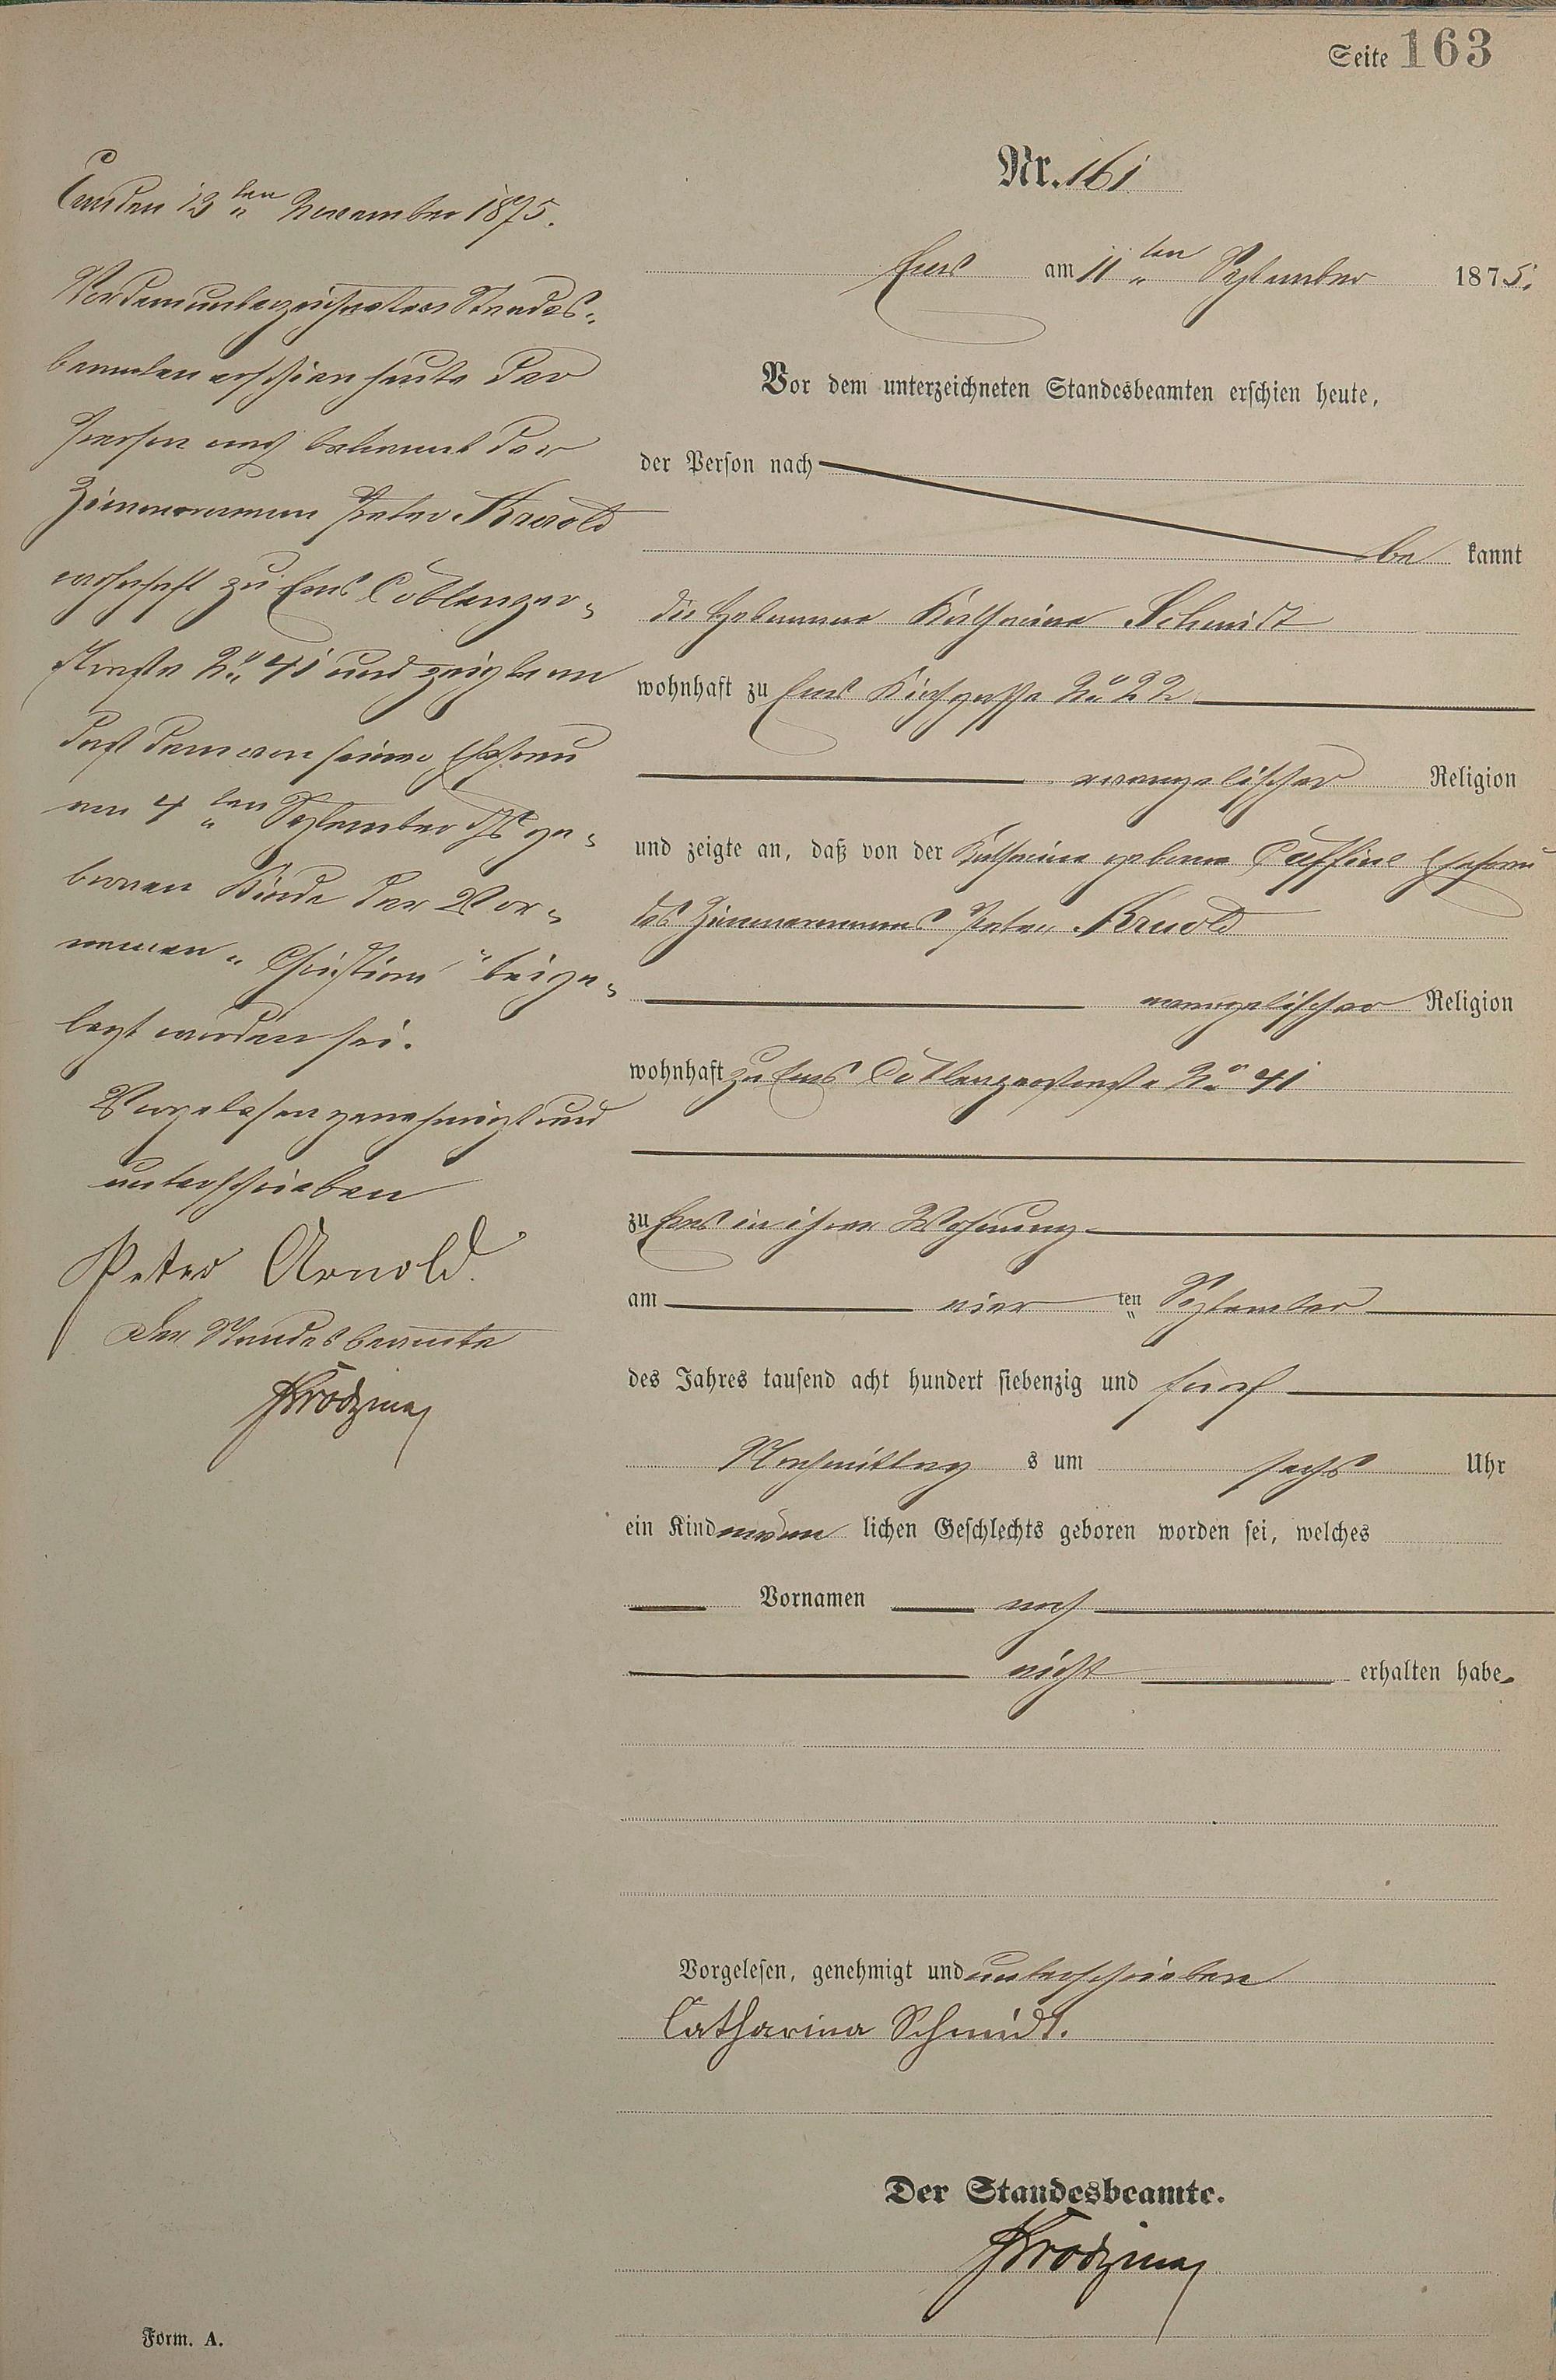 Seite 163
Nr. 161
Ems am 11ten September 1875.
Vor dem unterzeichneten Standesbeamten erschien heute,
der Person nach
be kannt
die Hebamme Katharina Schmidt
wohnhaft zu Ems Kirchgasse No 22
evangelischer Religion
und zeigte an, daß von der Katharina geborne Ehefrau
des Zimmermanns Peter Arnold
evangelischer Religion
wohnhaft zu Ems Coblenzerstraße No 41
zu Ems in ihrer Wohnung
am vier ten September
des Jahres tausend acht hundert siebenzig und fünf
Nachmittag s um sechs Uhr
ein Kind männ lichen Geschlechts geboren worden sei, welches
Vornamen noch
nicht erhalten habe.
Vorgelesen, genehmigt und unterschrieben
Catharina Schmidt.
Der Standesbeamte.
Ems den 13ten November 1875.
Vor dem unterzeichneten Standes-
beamten erschien heute der
Person nach bekannt der
Zimmermann Peter Arnold
wohnhaft zu Ems Coblenzer-
straße No 41 und zeigte an
daß dem von seiner Ehefrau
am 4ten September ge-
bornen Kinde der Vor-
namen „Christian" beige-
legt worden sei.
Vorgelesen genehmigt und
unterschrieben
Peter Arnold.
Der Standesbeamte
Form. A.